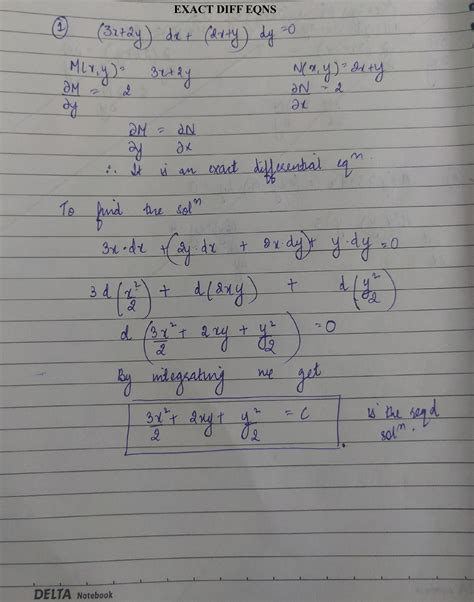 EXACT DIFF EQNS
① (3x+2y) dx + (2x+y) dy = 0
M(x,y) = 3x+2y N(x,y) = 2x+y
∂M/∂y = 2 ∂N/∂x = 2
∂M/∂y = ∂N/∂x
∴ It is an exact differential eqⁿ.
To find the solⁿ
3x·dx + (2y·dx + 2x·dy) + y·dy = 0
3d(x²/2) + d(2xy) + d(y²/2)
d(3x²/2 + 2xy + y²/2) = 0
By integrating we get
3x²/2 + 2xy + y²/2 = C is the reqd
solⁿ.
DELTA Notebook